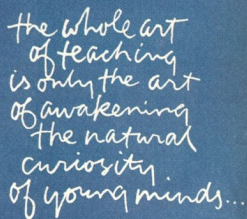 the whole art
of teaching
is only the art
of awakening
the natural
curiosity
of young minds...